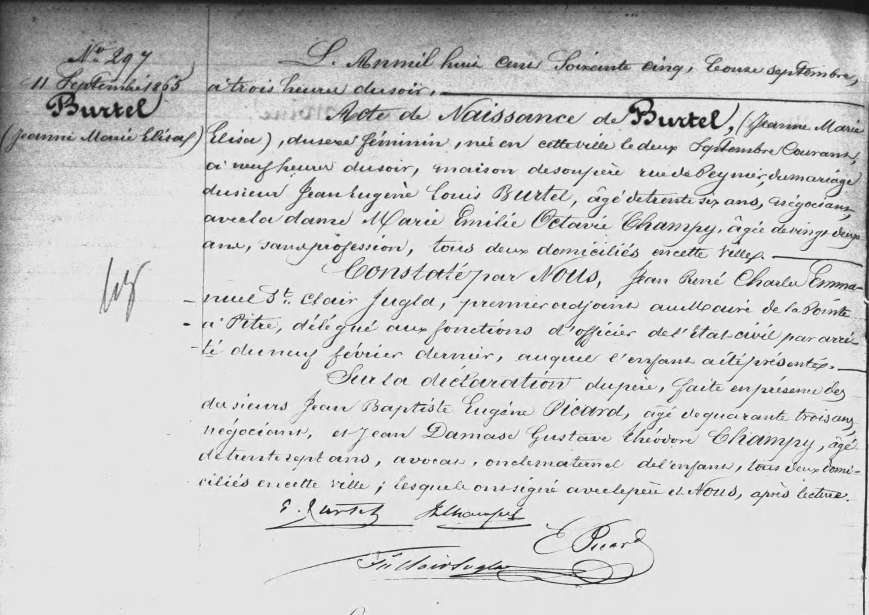 No 297
11 Septembre 1865
Burtel
(Jeanne Marie Elisa)
L'An mil huit cent Soixante cinq, et le onze septembre,
à trois heures du soir,
Acte de Naissance de Burtel, (Jeanne Marie
Elisa), du sexe féminin, née en cette ville le deux Septembre Courant,
à neuf heures du soir, maison de son père rue de Peynier, du mariage
du sieur Jean Eugène Louis Burtel, âgé de trente six ans, négociant,
avec la dame Marie Emilie Octavie Champy, âgée de vingt deux
ans, sans profession, tous deux domiciliés en cette ville.
Constaté par Nous, Jean René Charles Emma-
nuel St. Clair Jugla, premier adjoint au Maire de la Pointe
à Pitre, délégué aux fonctions d'officier de l'Etat civil par arrê-
té du neuf février dernier, auquel l'enfant a été présenté.
Sur la déclaration du père, faite en présence des
du sieurs Jean Baptiste Eugène Picard, âgé de quarante trois ans,
négociant, et Jean Damase Gustave Théodore Champy, âgé
de trente sept ans, avocat, oncle maternel de l'enfant, tous deux domi-
ciliés en cette ville; lesquels ont signé avec le père et Nous, après lecture.
E. Burtel
E Picard
St Clair Jugla